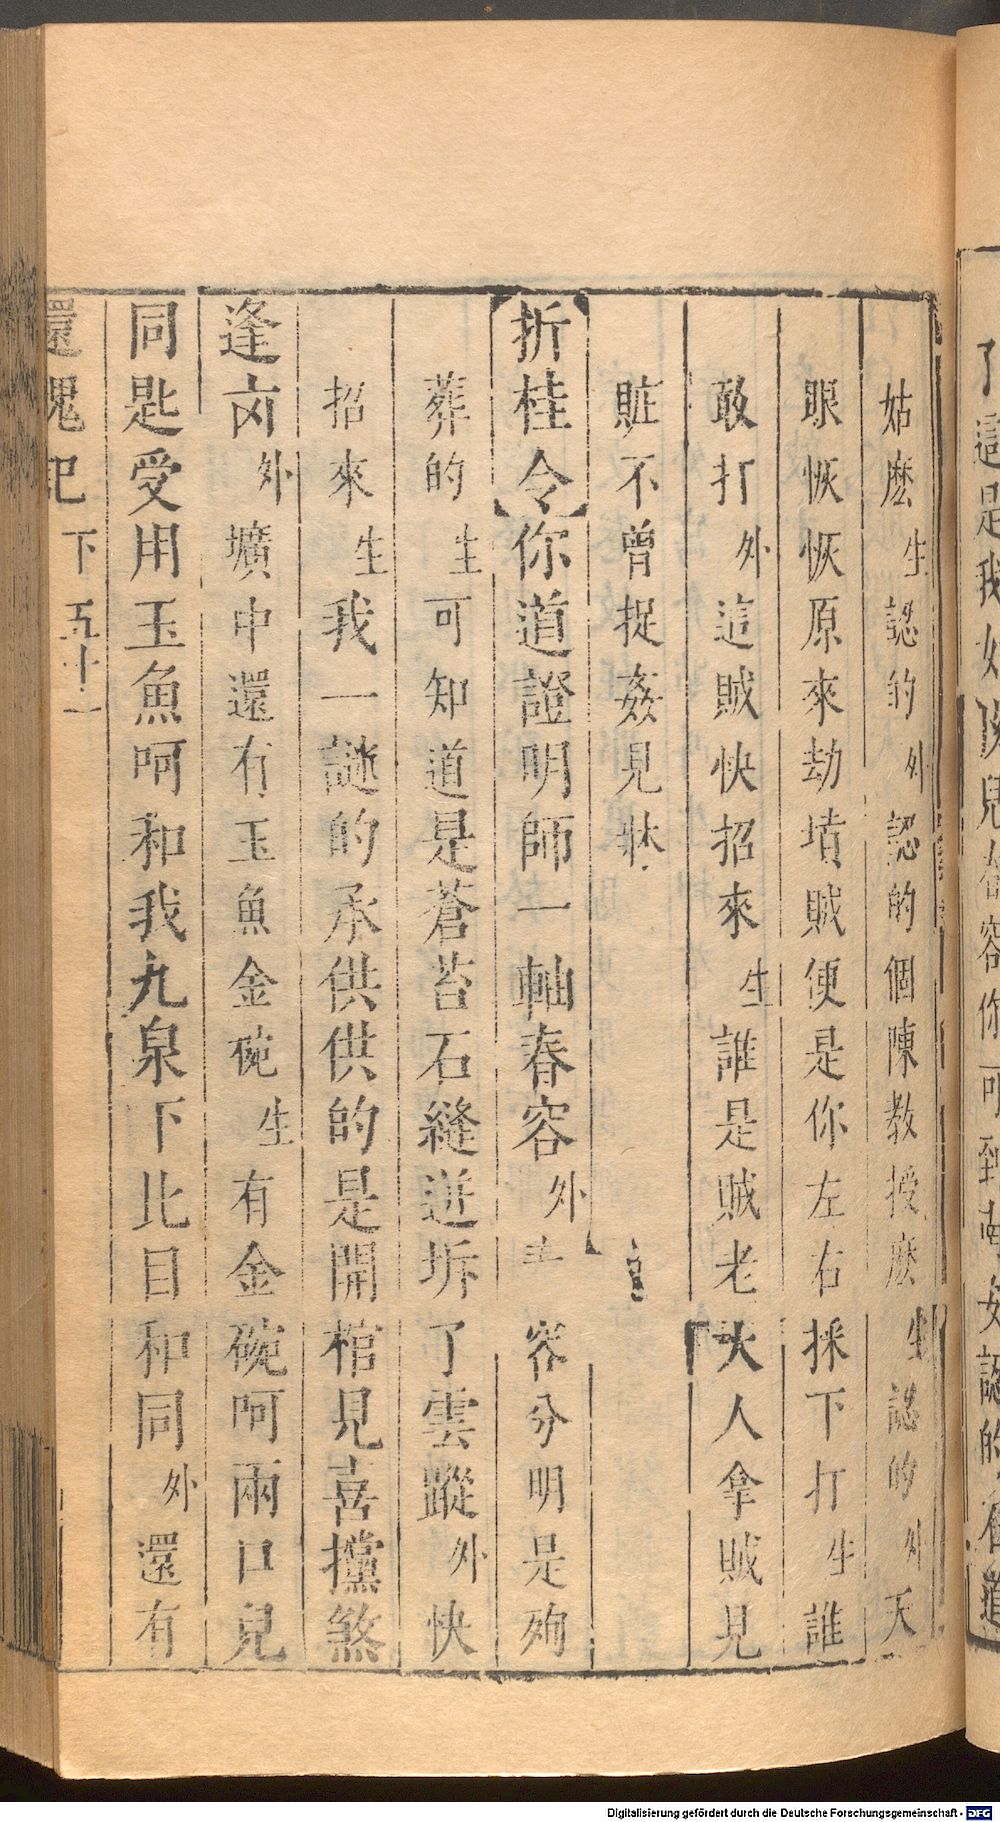 姑麽生認的外認的個陳教授麽生認的外天
眼恢恢原來劫墳賊便是你左右採下打生誰
敢打外這賊快招來生誰是賊老大人拿賊見
賍不曾捉姦見牀
【折桂令】你道證明師一軸春容外春容分明是殉
葬的生可知道是蒼苔石縫迸坼了雲蹤外快
招來生我一謎的承供供的是開棺見喜攩煞
逢凶外壙中還有玉魚金碗生有金碗呵兩口兒
同匙受用玉魚呵和我九泉下比目和同外還有
還魂記 下 五十一
了這是我女
可到
女認的
道
Digitalisierung gefördert durch die Deutsche Forschungsgemeinschaft - DFG